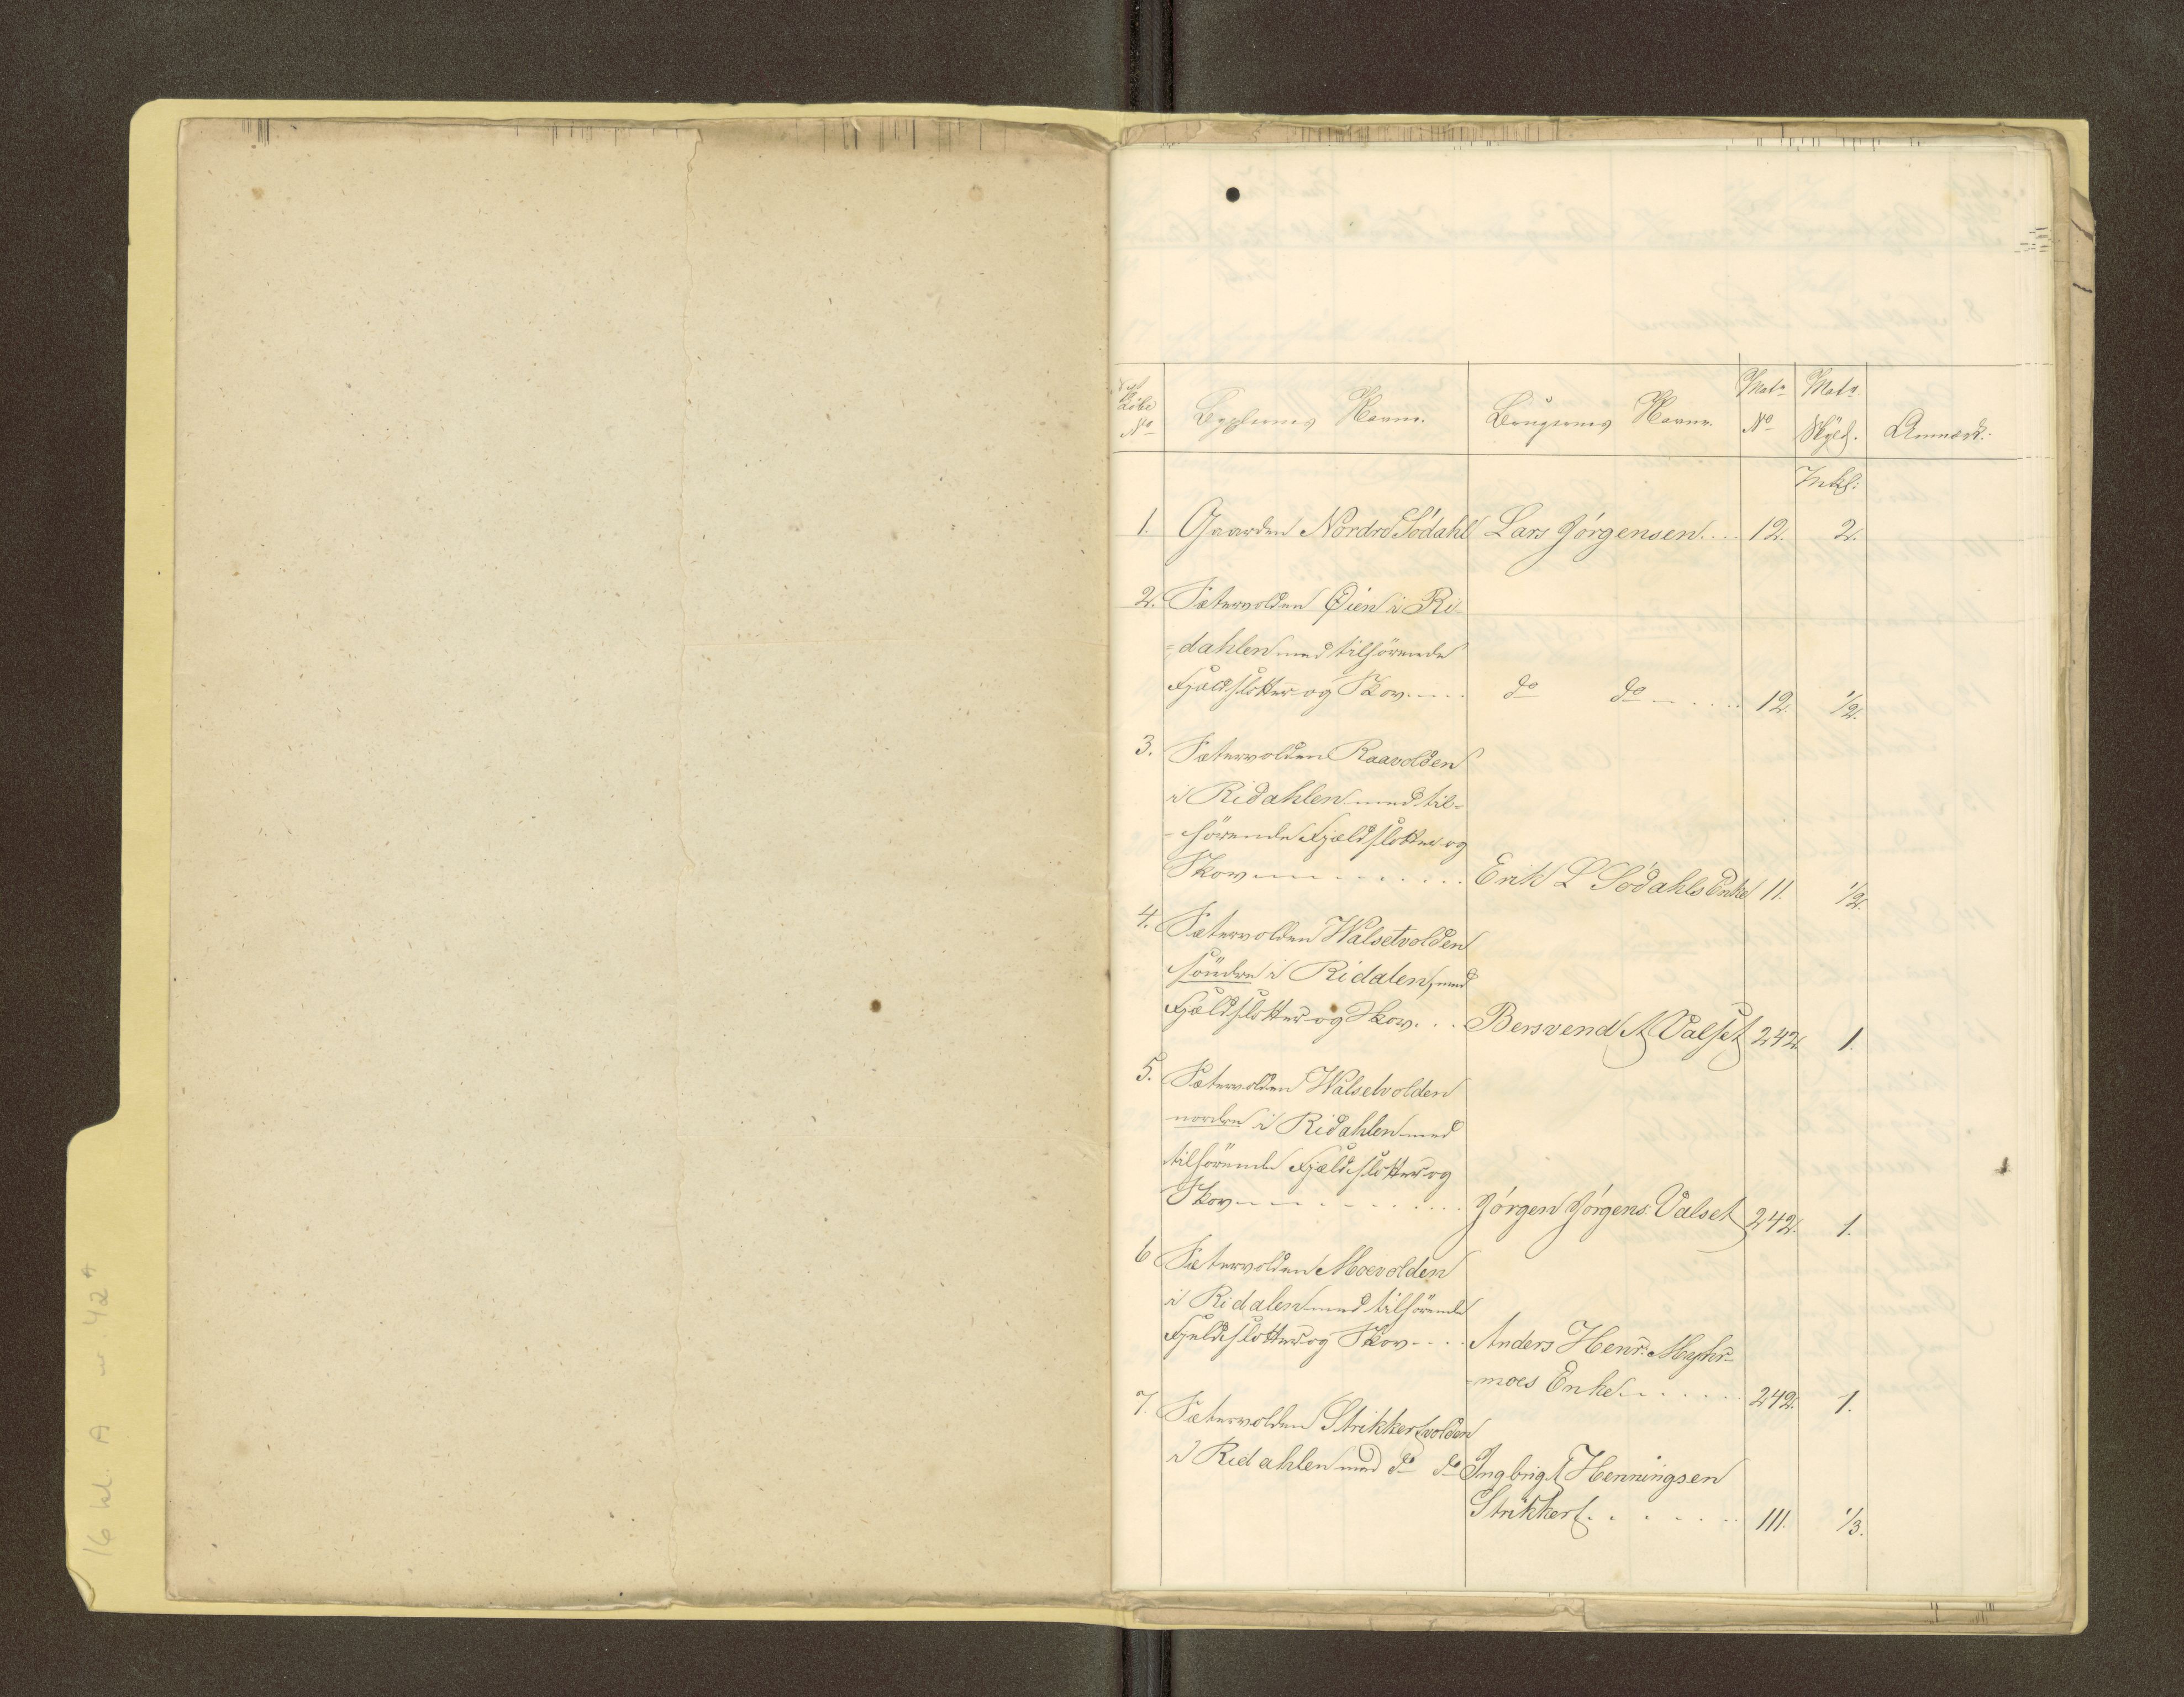 Løbe Bygslernes Navne. Brugernes Navne. Matr Matr Anmærk:
No No Skyld.
Mkl:
1. Gaarden Nordre Södahl Lars Jörgensen.... 12. 2.
2. Sætervolden Øien i Ri-
=dahlen med tilhörende
Fjeldslotter og Skov.... do do..... 12. 1/2.
3. Sætervolden Raavolden
i Ridahlen med til-
-hörende Fjeldslotter og
Skov......... Erik L Södahls Enke 11. 1/2.
4. Sætervolden Walsetvolden
söndre i Ridalen, med
Fjeldslotter og Skov... Bersvend A Valset 242. 1.
5. Sætervolden Walsetvolden
nordre i Ridahlen med
tilhörende Fjeldslotter og
Skov......... Jörgen Jörgens: Valset 242. 1.
6 Sætervolden Moevolden
i Ridalen med tilhörende
Fjeldslotter og Skov.... Anders Henr: Myhr-
-moes Enke...... 242. 1.
7. Sætervolden Strikkertvolden
i Ridahlen med do do Ingbrigt Henningsen
Strikkert....... 111. 1/3.
16 kl. A nr. 42 A